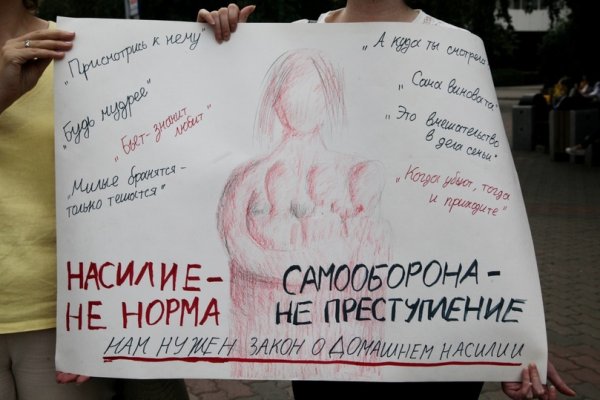 "Присмотрись к нему"
"Будь мудрее"
"Бьет - значит
любит"
"Милые бранятся -
только тешатся"
"А куда ты смотрела"
"Сама виновата"
"Это вмешательство
в дела семьи"
"Когда убьют, тогда
и приходите"
НАСИЛИЕ -
НЕ НОРМА
САМООБОРОНА -
НЕ ПРЕСТУПЛЕНИЕ
НАМ НУЖЕН ЗАКОН О ДОМАШНЕМ НАСИЛИИ